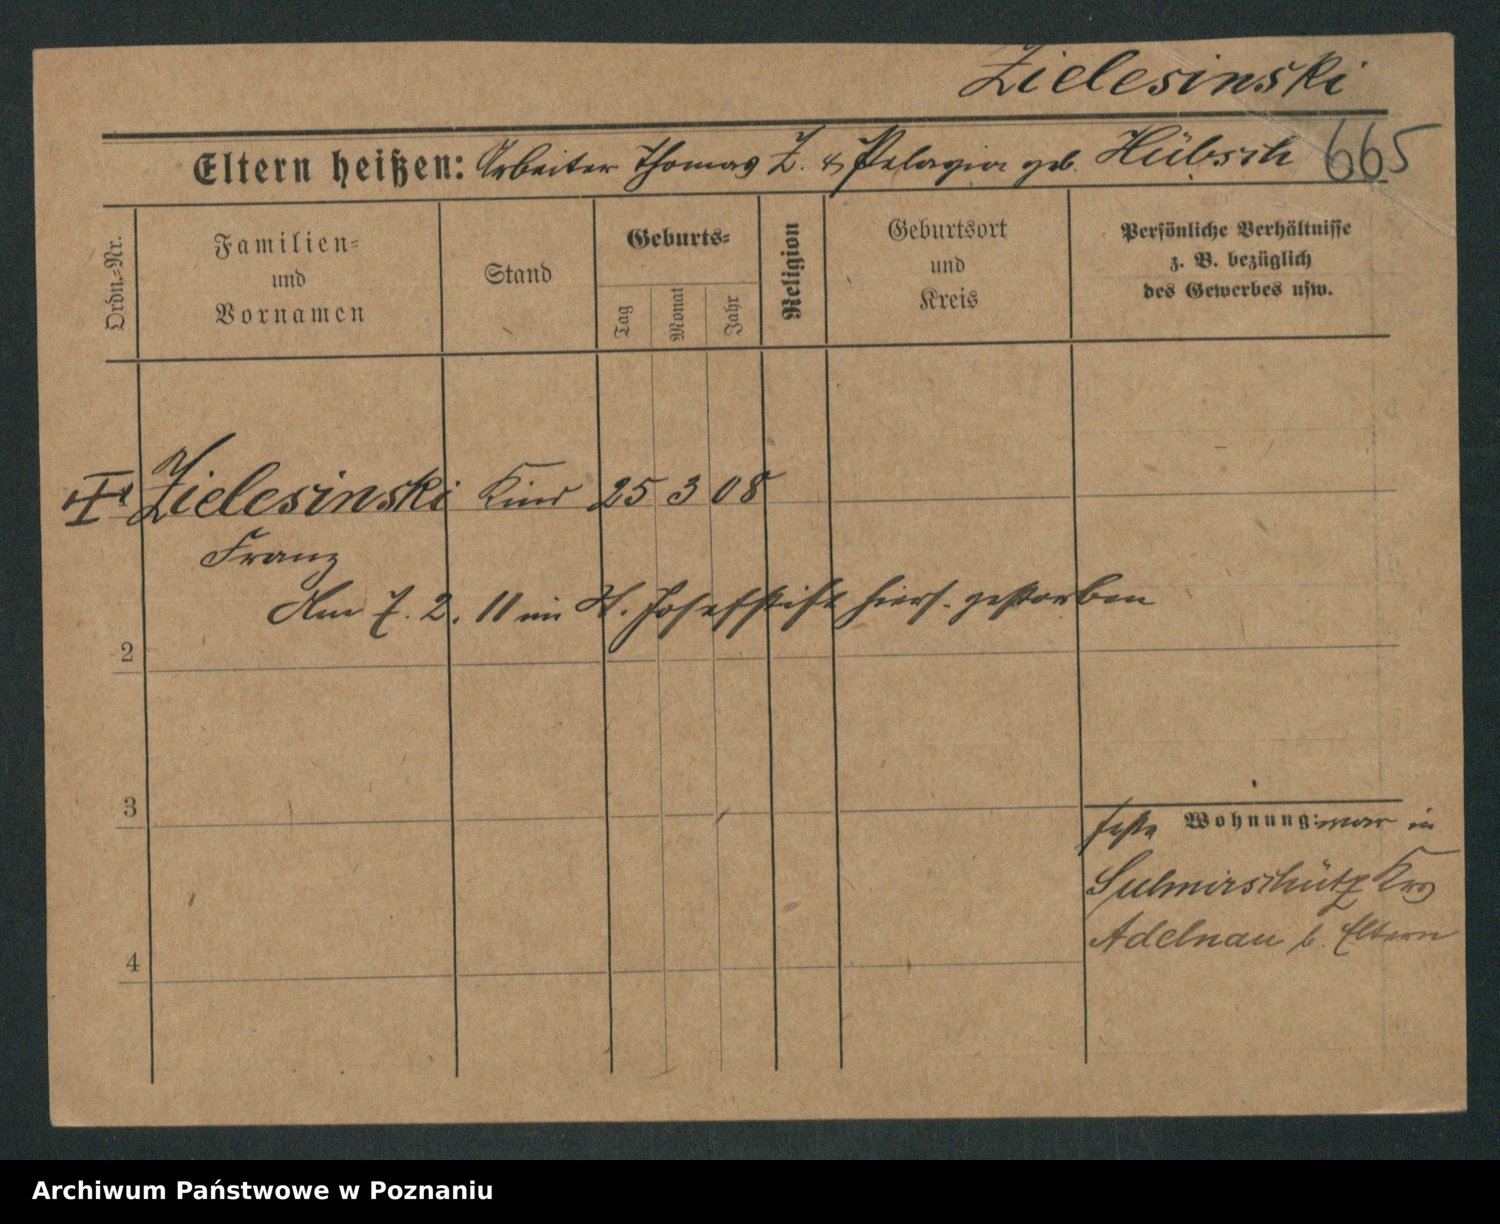 Zielesinski
Eltern heißen: Arbeiter Thomas Z. & Pelagia geb. Hübsch 665
Ordn.-Nr.
Familien-
und
Vornamen
Stand
Geburts-
Tag
Monat
Jahr
Religion
Geburtsort
und
Kreis
Persönliche Verhältnisse
z. B. bezüglich
des Gewerbes usw.
Zielesinski Kind 25 3 08
Franz
Am 7. 2. 11 im St. Josefstift hiers. gestorben
2
3
feste Wohnung: war in
Sulmirschütz Krs
Adelnau b. Eltern
4
Archiwum Państwowe w Poznaniu